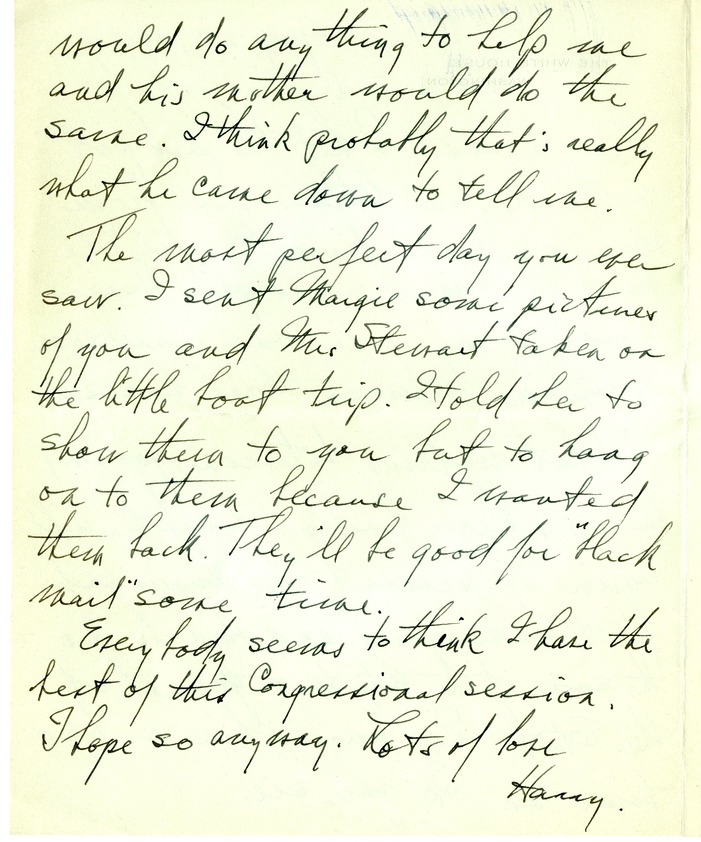 would do anything to help me
and his mother would do the
same. I think probably that's really
what he came down to tell me.
The most perfect day you ever
saw. I sent Margie some pictures
of you and Mrs Stewart taken on
the little boat trip. I told her to
show them to you but to hang
on to them because I wanted
them back. They'll be good for "black
mail" some time.
Everybody seems to think I have the
best of this Congressional session.
I hope so anyway. Lots of love
Harry.